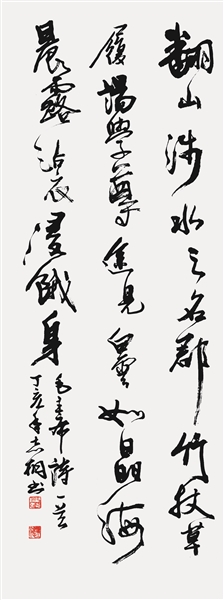 翻山涉水之名郡竹杖草
履謁學尊途見白雲如晶海
晨露沾衣浸餓身
毛主席詩一首
丁亥年志桐書